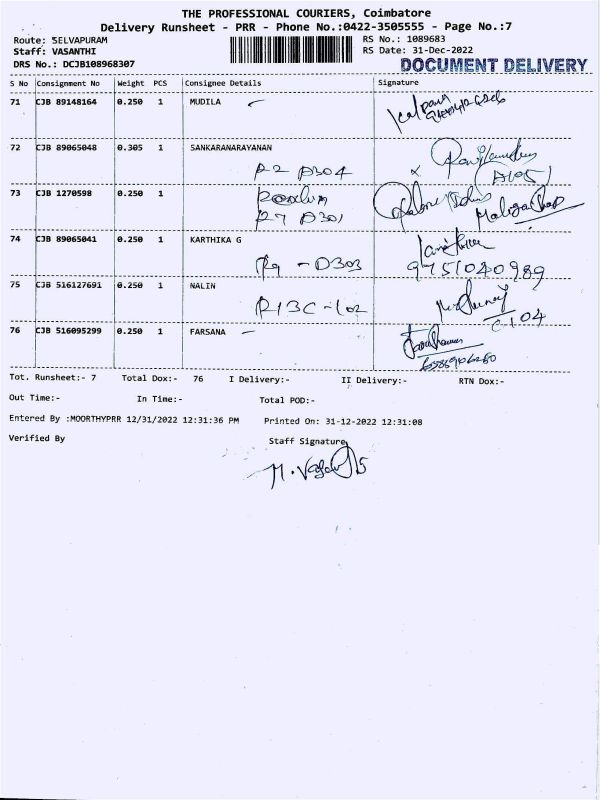 THE PROFESSIONAL COURIERS, Coimbatore
Delivery Runsheet - PRR - Phone No.:0422-3505555 - Page No.:7
Route: SELVAPURAM RS No.: 1089683
Staff: VASANTHI RS Date: 31-Dec-2022
DRS No.: DCJB108968307 DOCUMENT DELIVERY
S No Consignment No Weight PCS Consignee Details Signature
71 CJB 89148164 0.250 1 MUDILA
72 CJB 89065048 0.305 1 SANKARANARAYANAN
R2 D304
73 CJB 1270598 0.250 1
R7 D301
74 CJB 89065041 0.250 1 KARTHIKA G
R9 - D303 9751040989
75 CJB 516127691 0.250 1 NALIN
R13C-102 C104
76 CJB 516095299 0.250 1 FARSANA
Tot. Runsheet:- 7 Total Dox:- 76 I Delivery:- II Delivery:- RTN Dox:-
Out Time:- In Time:- Total POD:-
Entered By :MOORTHYPRR 12/31/2022 12:31:36 PM Printed On: 31-12-2022 12:31:08
Verified By Staff Signature